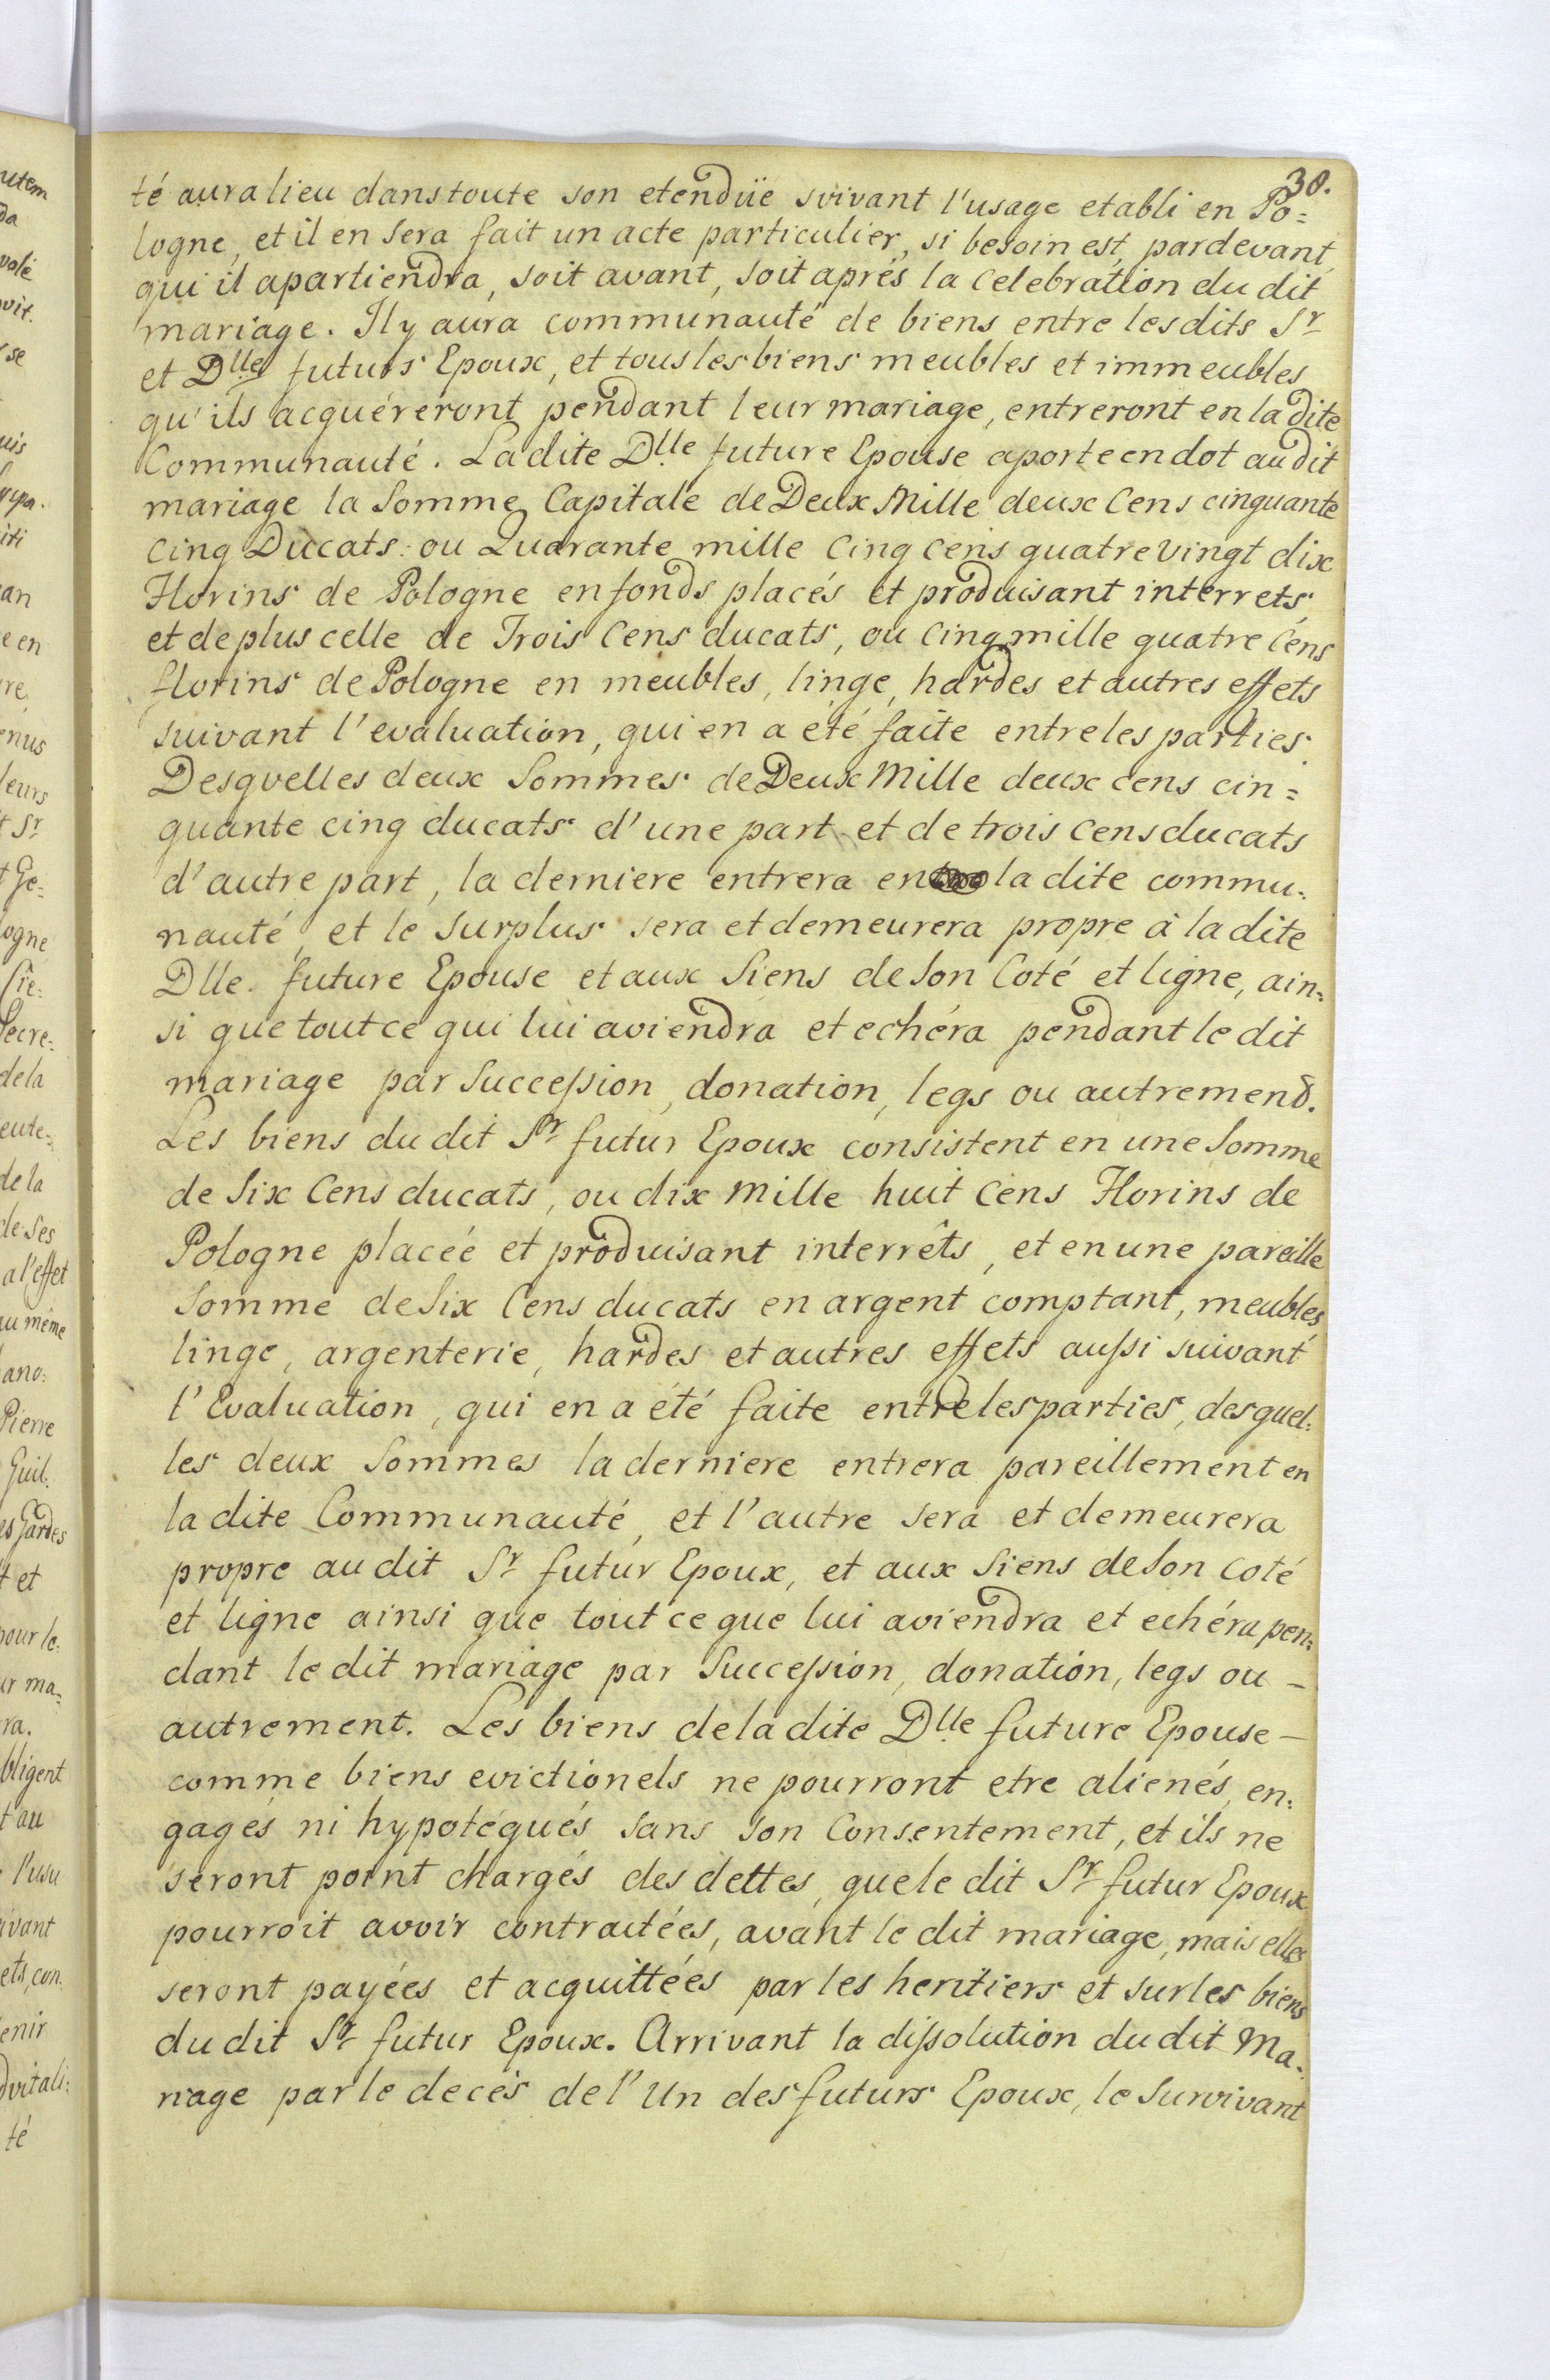 30.
té aura lieu dans toute son etendüe svivant l'usage etabli en Po=
logne, et il en sera fait un acte particulier, si besoin est, pardevant
qui il apartiendra, soit avant, soit aprés la celebration du dit
mariage. Il y aura communauté de biens entre lesdits Sr
et Dlle futurs Epoux, et tous les biens meubles et immeubles
qu'ils acquéreront pendant leur mariage, entreront en la dite
Communauté. La dite Dlle future Epouse aporte en dot au dit
mariage la Somme Capitale de Deux Mille deux Cens cinquante
cinq Ducats: ou Quarante mille Cinq cens quatre vingt dix
Florins de Pologne en fonds placés et produisant interrets,
et de plus celle de Trois Cens ducats, ou cinq mille quatre Cens
florins de Pologne en meubles, linge, hardes et autres effets
suivant l'evaluation, qui en a été faite entre les parties.
Desqvelles deux Sommes de Deux Mille deux cens cin=
quante cinq ducats d'une part et de trois cens ducats
d'autre part, la derniere entrera en la dite commu=
nauté, et le surplus sera et demeurera propre à la dite
Dlle. future Epouse et aux Siens de son Coté et ligne, ain=
si que tout ce qui lui aviendra et echéra pendant le dit
mariage par Succession, donation, legs ou autrement.
Les biens du dit Sr futur Epoux consistent en une Somme
de Six Cens ducats, ou dix mille huit cens Florins de
Pologne placéé et produisant interrêts, et en une pareille
Somme de Six Cens ducats en argent comptant, meubles
linge, argenterie, hardes et autres effets aussi suivant
l'Evaluation, qui en a été faite entre les parties, desquel=
les deux Sommes la derniere entrera pareillement en
la dite Communauté, et l'autre sera et demeurera
propre au dit Sr futur Epoux, et aux Siens de son coté
et ligne ainsi que tout ce que lui aviendra et echéra pen=
dant le dit mariage par Succession, donation, legs ou -
autrement. Les biens de la dite Dlle future Epouse -
comme biens evictionels ne pourront etre alienés, en=
gagés ni hypotéqués sans son Consentement, et ils ne
seront point chargés des dettes, que le dit Sr futur Epoux
pourroit avoir contractées, avant le dit mariage, mais elles
seront payées et acquittéés par les heritiers et sur les biens
du dit Sr futur Epoux. Arrivant la dissolution du dit Ma=
riage par le decés de l'Un des futurs Epoux, le Survivant